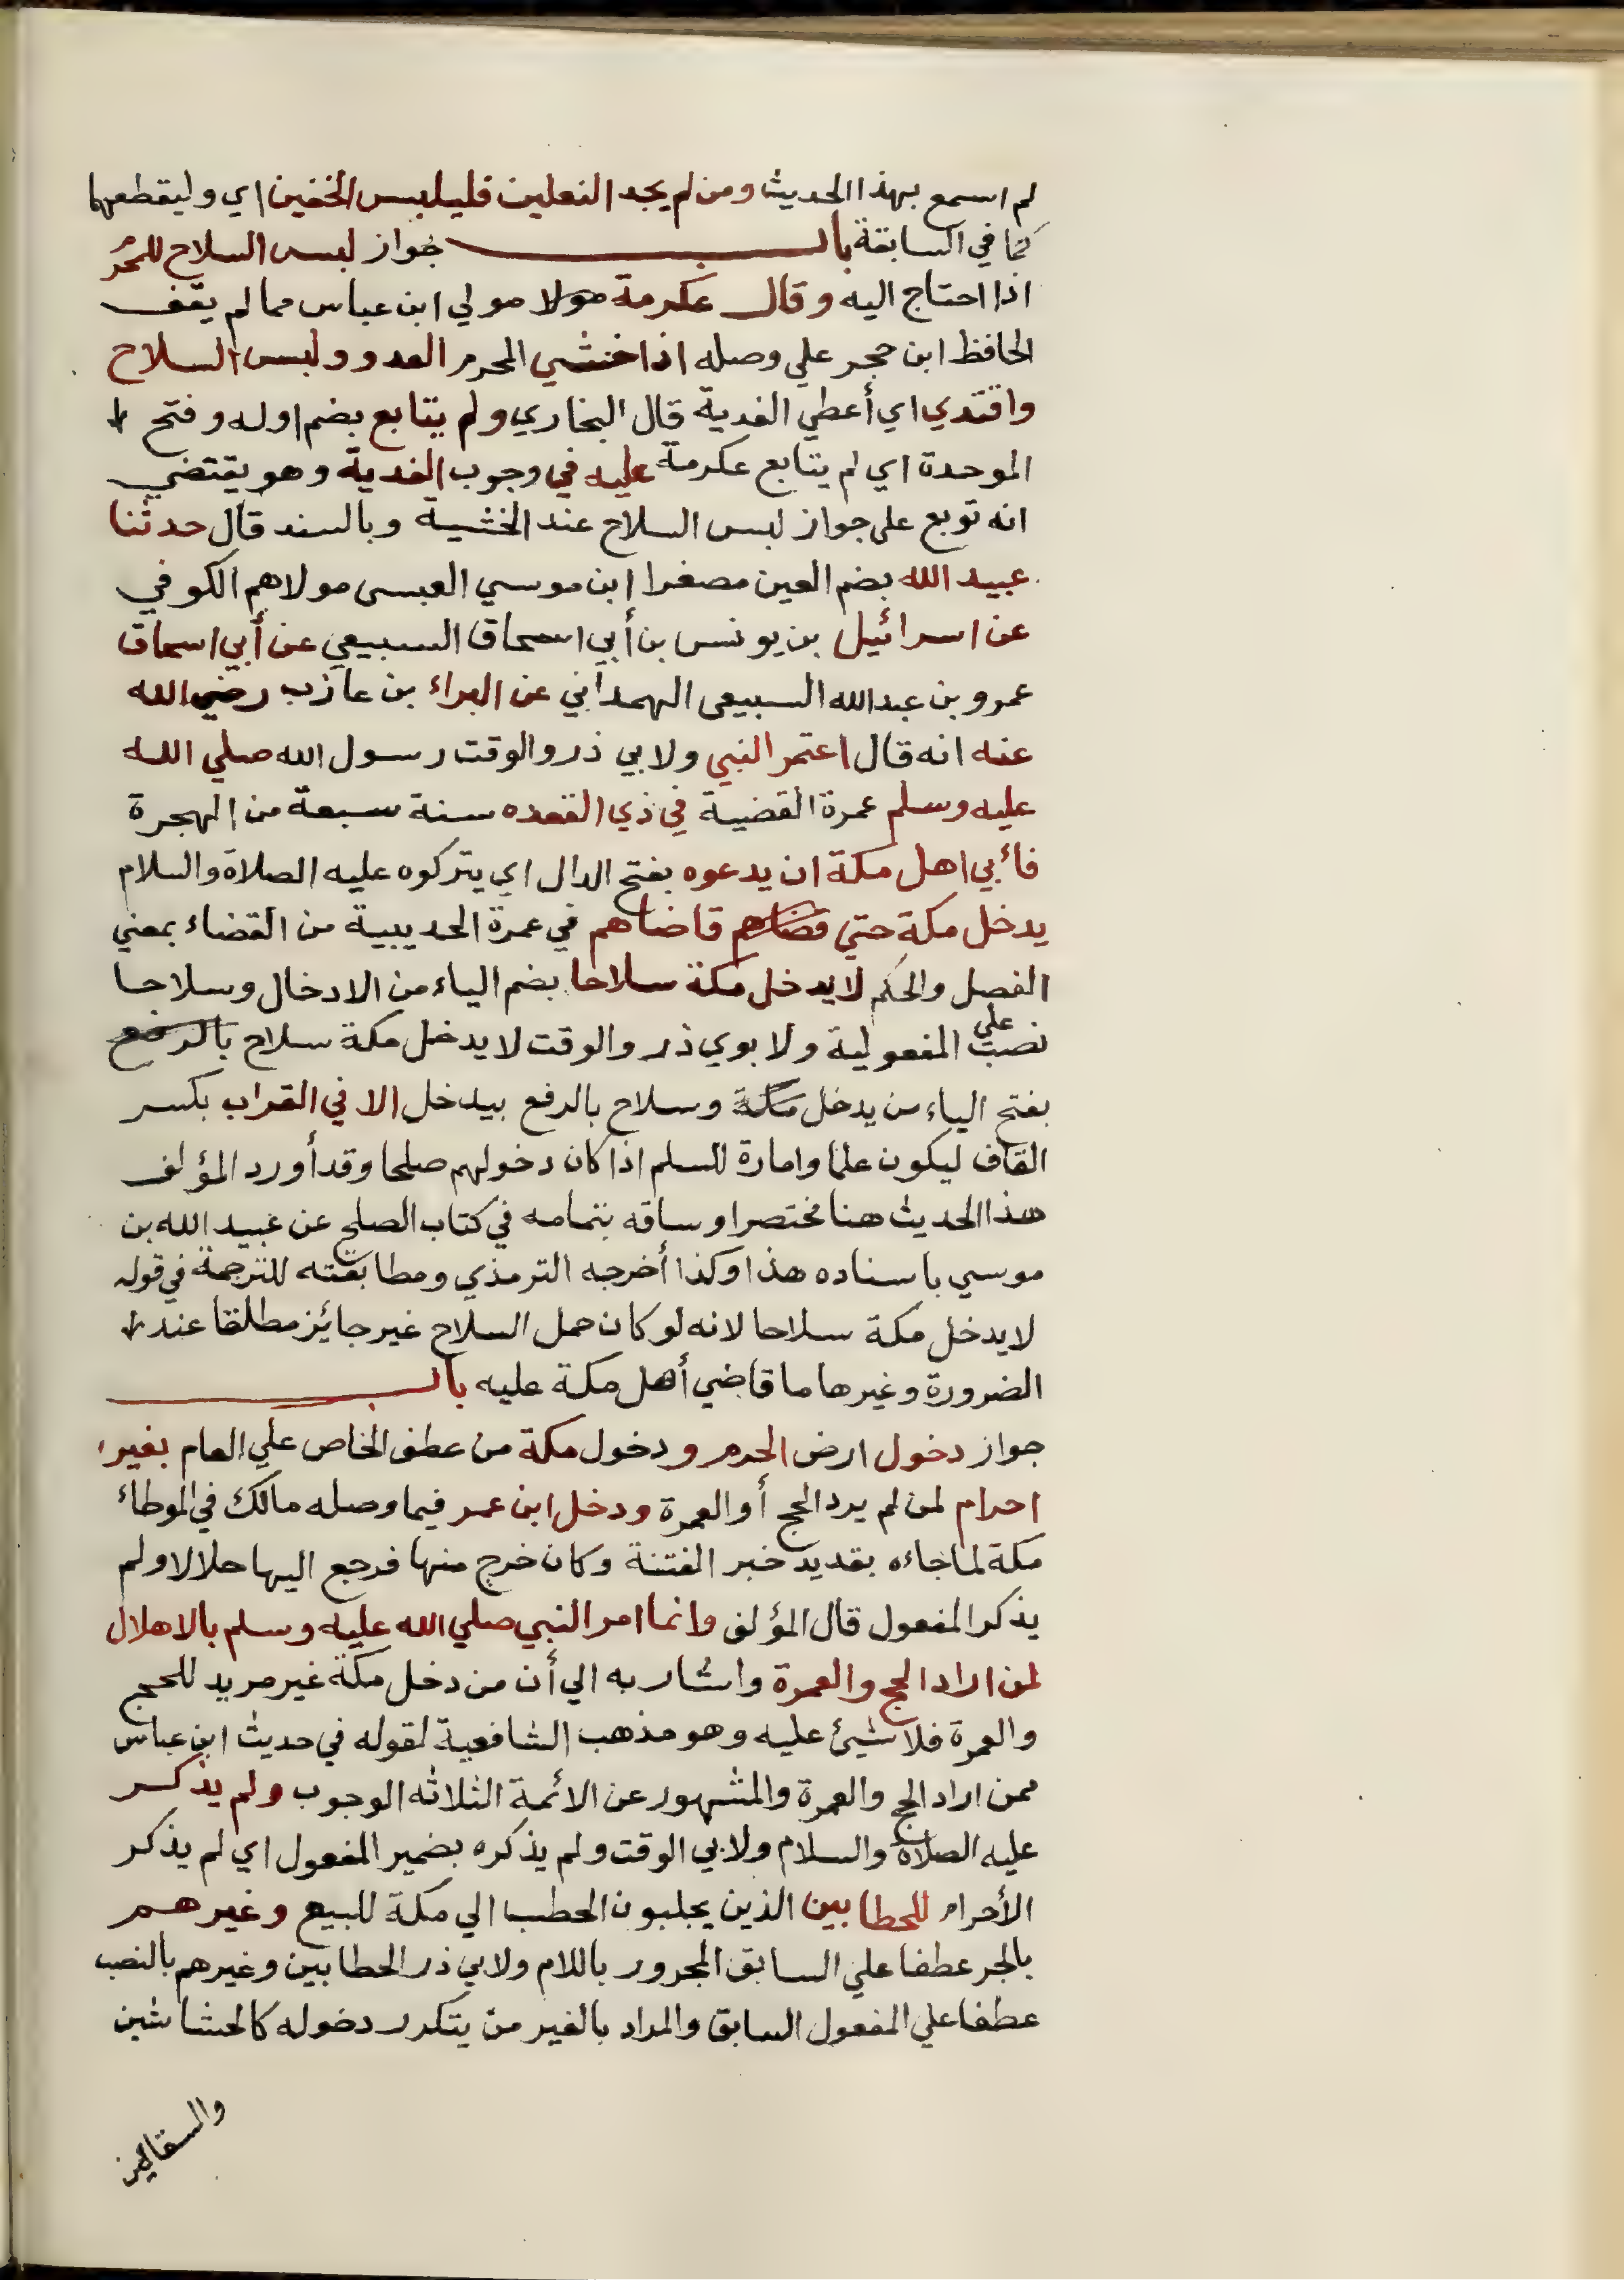 لم اسمع بهذا الحديث ومن لم يجد النعلين فليلبس الخفين اي وليقطعهما
كما في السابقة باب جواز لبس السلاح للمحرم
اذا احتاج اليه وقال عكرمة مولا مولي ابن عباس مما لم يقف
الحافظ ابن حجر علي وصله اذا خشي المحرم العدو ولبس السلاح
وافتدي اي أعطي الفدية قال البخاري ولم يتابع بضم اوله وفتح
الموحدة اي لم يتابع عكرمة عليه في وجوب الفدية وهو يقتضي
انه توبع على جواز لبس السلاح عند الخشية وبالسند قال حدثنا
عبيد الله بضم العين مصغرا ابن موسي العبسى مولاهم الكوفي
عن اسرائيل بن يونس بن أبي اسحاق السبيعي عن أبي اسحاق
عمرو بن عبدالله السبيعى الهمداني عن البراء بن عازب رضي الله
عنه انه قال اعتمر النبي ولابي ذر والوقت رسول الله صلي الله
عليه وسلم عمرة القضية في ذي القعده سنة سبعة من الهجرة
فأبي اهل مكة ان يدعوه بفتح الدال اي يتركوه عليه الصلاة والسلام
يدخل مكة حتي قضاهم قاضاهم في عمرة الحديبية من القضاء بمعني
الفصل والحكم لا يدخل مكة سلاحا بضم الياء من الادخال وسلاحا
نصب علي المفعولية ولابوي ذر والوقت لا يدخل مكة سلاح بالرفع
بفتح الياء من يدخل مكة وسلاح بالرفع بيدخل الا في القراب بكسر
القاف ليكون علما وامارة للسلم اذا كان دخولهم صلحا وقد أورد المؤلف
هذا الحديث هنا مختصرا وساقه بتمامه في كتاب الصلح عن عبيد الله بن
موسي باسناده هذا وكذا أخرجه الترمذي ومطابقته للترجمة في قوله
لا يدخل مكة سلاحا لانه لو كان حمل السلاح غير جائز مطلقا عند
الضرورة وغيرها ما قاضي أهل مكة عليه باب
جواز دخول ارض الحرم ودخول مكة من عطف الخاص علي العام بغير
احرام لمن لم يرد الحج أو العمرة ودخل ابن عمر فيما وصله مالك في الموطاء
مكة لما جاءه بقديد خبر الفتنة وكان خرج منها فرجع اليها حلالا ولم
يذكر المفعول قال المؤلف وانما امر النبي صلي الله عليه وسلم بالاهلال
لمن اراد الحج والعمرة واشار به الي أن من دخل مكة غير مريد للحج
والعمرة فلا شيئ عليه وهو مذهب الشافعية لقوله في حديث ابن عباس
ممن اراد الحج والعمرة والمشهور عن الائمة الثلاثه الوجوب ولم يذكر
عليه الصلاة والسلام ولابي الوقت ولم يذكره بضمير المفعول اي لم يذكر
الأحرام للحطابين الذين يجلبون الحطب الي مكة للبيع وغيرهم
بالجر عطفا علي السابق المجرور باللام ولابي ذر الحطابين وغيرهم بالنصب
عطفا علي المفعول السابق والمراد بالغير من يتكرر دخوله كالحشاشين
والسقايين